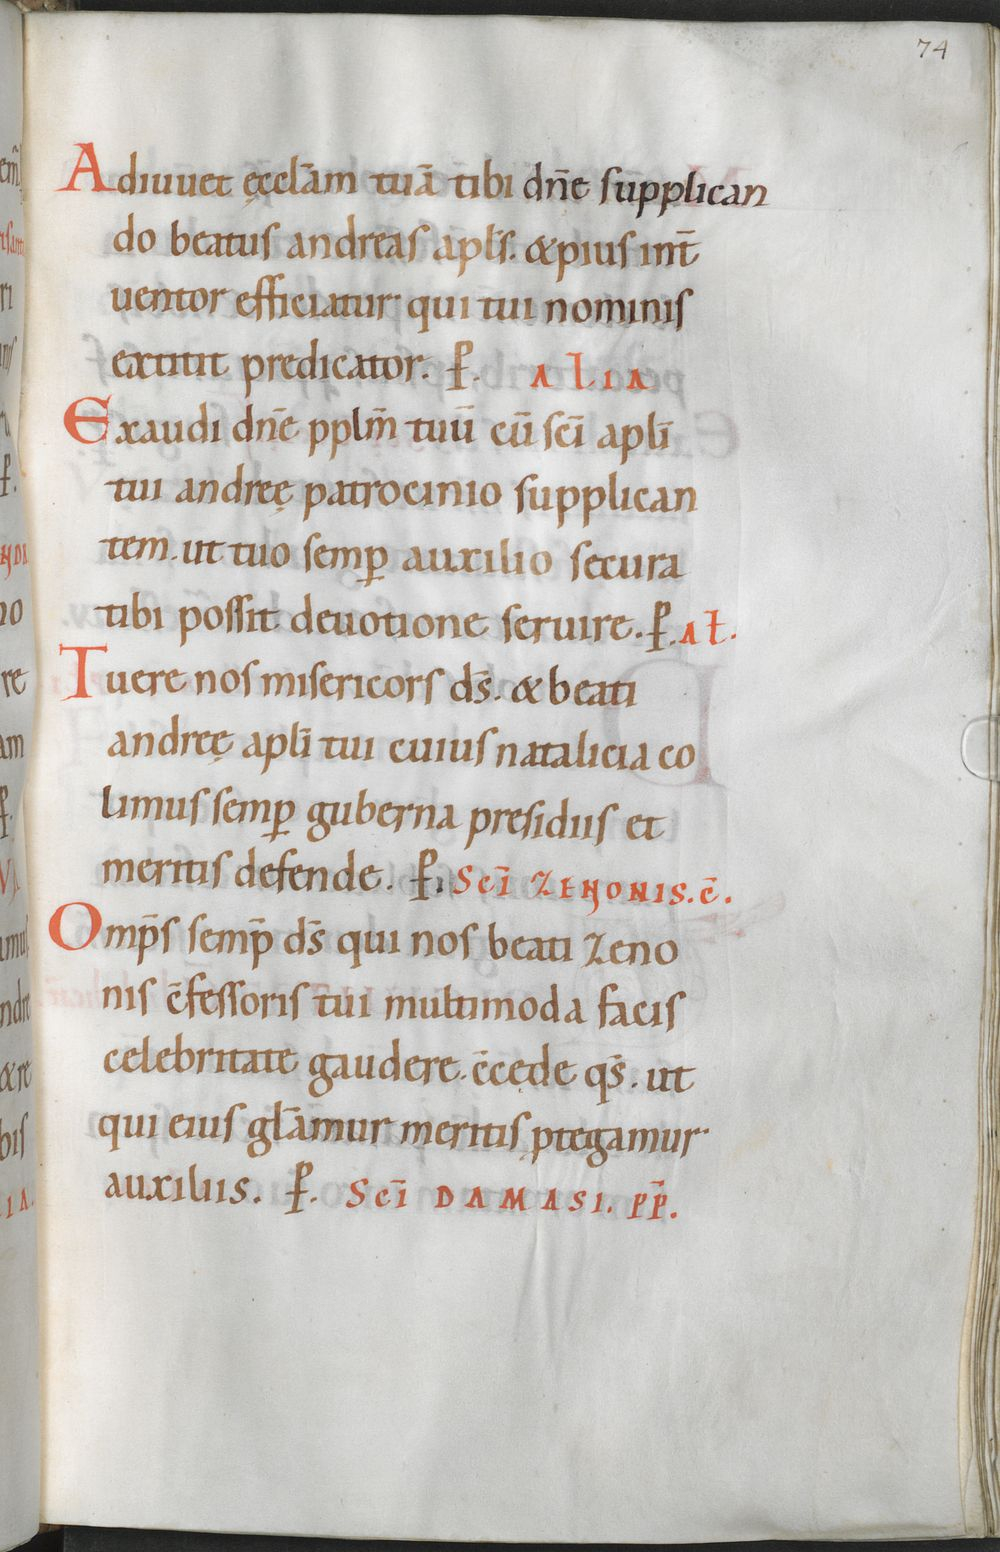 74
Adiuuet ęcclā̄m tuā tibi dn̄e supplican
do beatus andreas apl̄s. &pius int̄
uentor efficiatur qui tui nominis
extitit predicator. P̄. ALIA
Exaudi dn̄e pplm̄ tuū cū sc̄i apl̄i
tui andreę patrocinio supplican
tem. ut tuo semꝑ auxilio secura
tibi possit deuotione seruire. P̄. AL̄.
Tuere nos misericors ds̄. & beati
andreę apl̄i tui cuius natalicia co
limus semꝑ guberna presidiis et
meritis defende. P̄. Sc̄i ZENONIS. c̄.
Omp̄s semp̄ ds̄ qui nos beati zeno
nis c̄fessoris tui multimoda facis
celebritate gaudere. c̄cede qs̄. ut
qui eius gl̄amur meritis, ptegamur
auxiliis. P̄. Sc̄i DAMASI. PP̄.